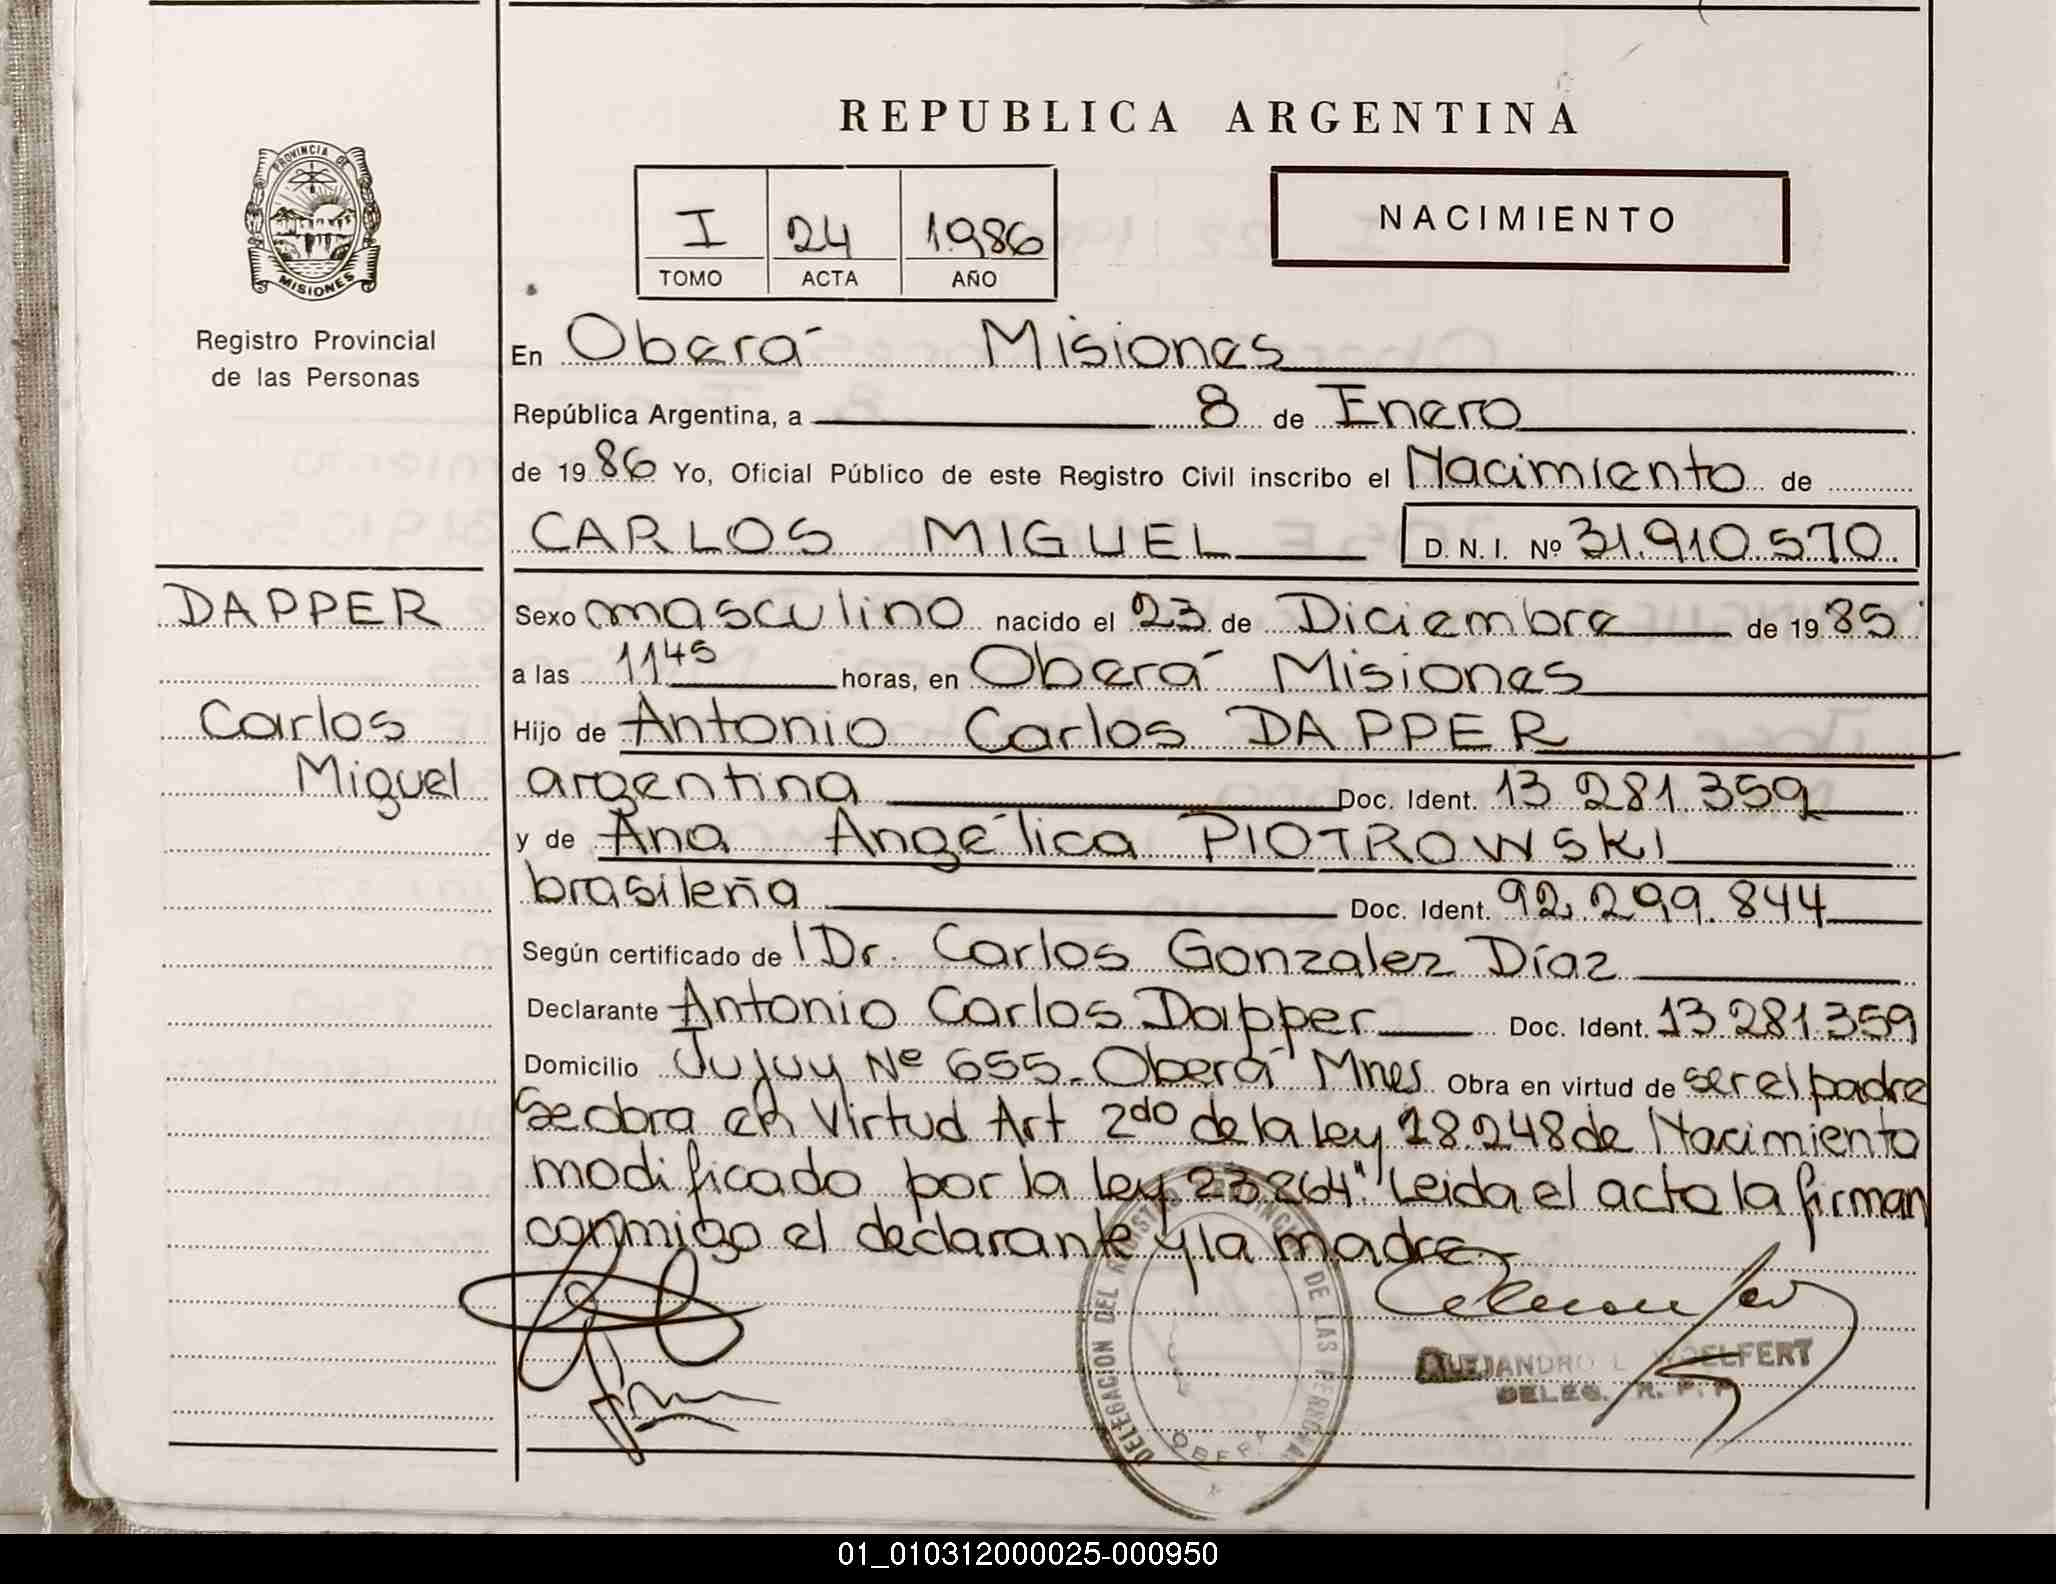 REPUBLICA ARGENTINA
PROVINCIA DE
MISIONES
I 24 1986
TOMO ACTA AÑO
NACIMIENTO
Registro Provincial
de las Personas
En Oberá Misiones
República Argentina, a 8 de Enero
de 1986 Yo, Oficial Público de este Registro Civil inscribo el Nacimiento de
CARLOS MIGUEL D. N. I. Nº 31.910.570
DAPPER
Carlos
Miguel
Sexo masculino nacido el 23 de Diciembre de 1985
a las 11 45 horas, en Oberá Misiones
Hijo de Antonio Carlos DAPPER
argentina Doc. Ident. 13 281.359
y de Ana Angélica PIOTROWSKI
brasileña Doc. Ident. 92.299.844
Según certificado de Dr. Carlos Gonzalez Díaz
Declarante Antonio Carlos Dapper Doc. Ident. 13 281.359
Domicilio Jujuy Nº 655. Oberá Mnes Obra en virtud de ser el padre
Se obra en Virtud Art 2do de la ley 18.248 de Nacimiento
modificado por la ley 23264" Leida el acto la firman
conmigo el declarante y la madre.-
DELEGACION DEL REGISTRO PROVINCIAL DE LAS PERSONAS
OBERA
ALEJANDRO L. WOELFERT
DELEG. R. P. P.
01_010312000025-000950